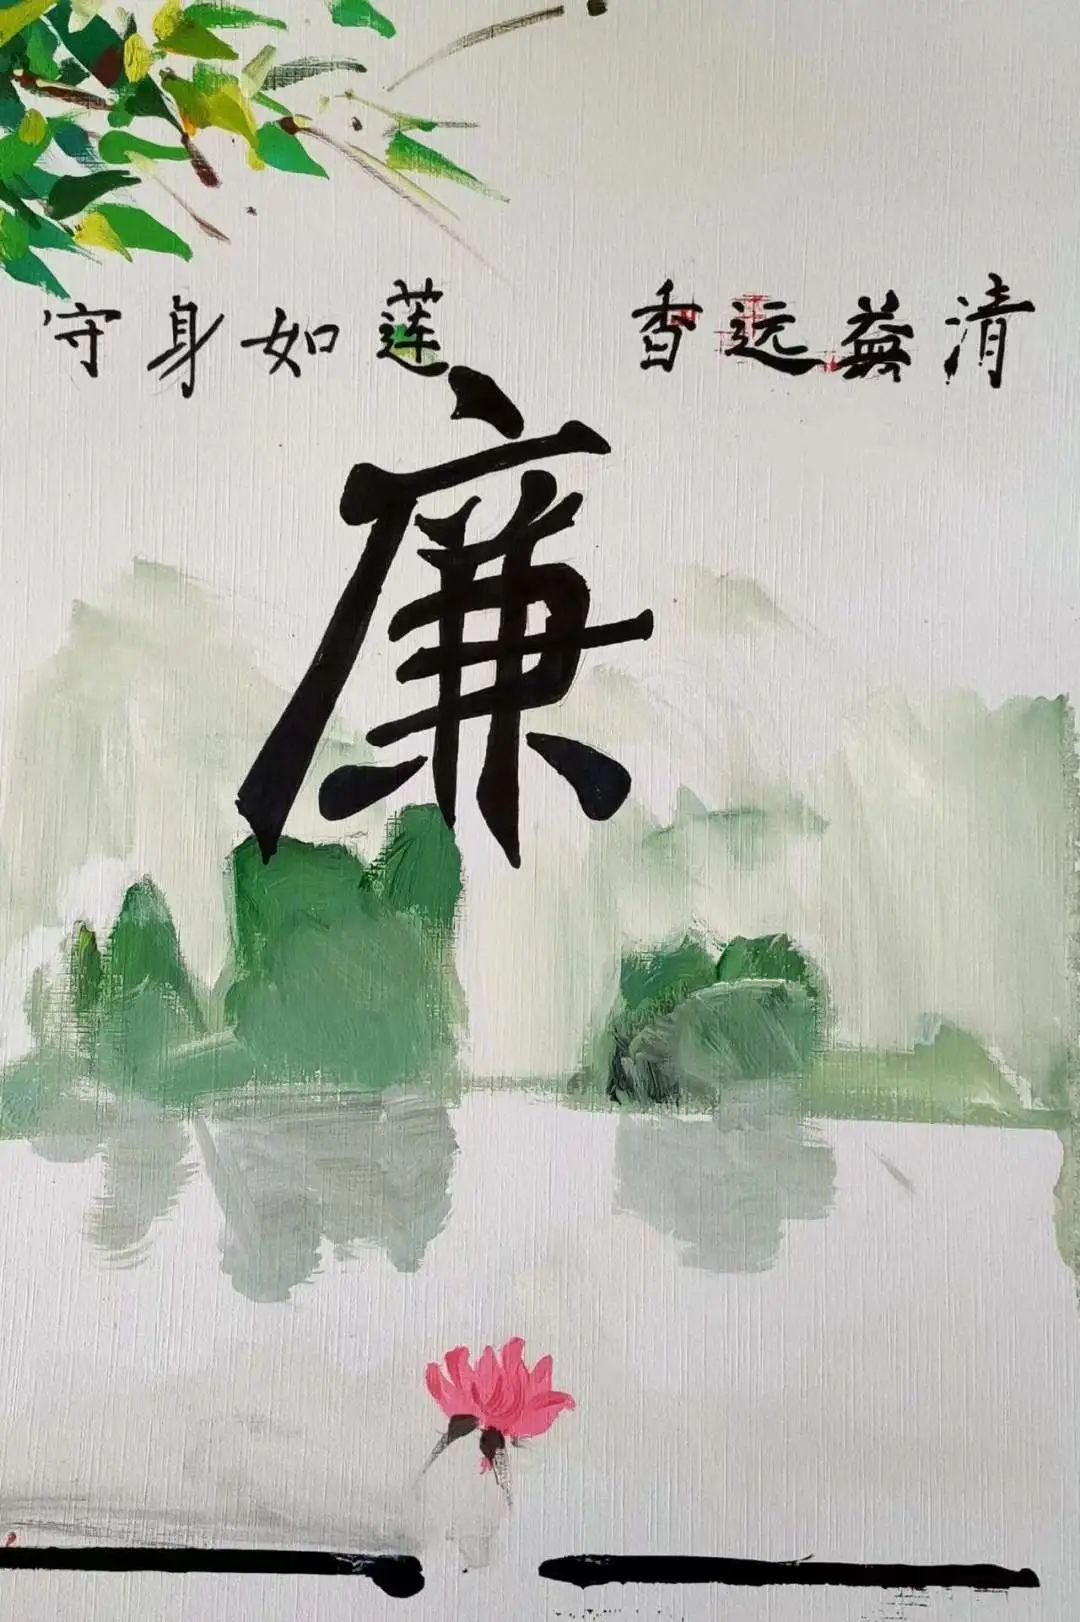 守身如莲 香远益清
廉